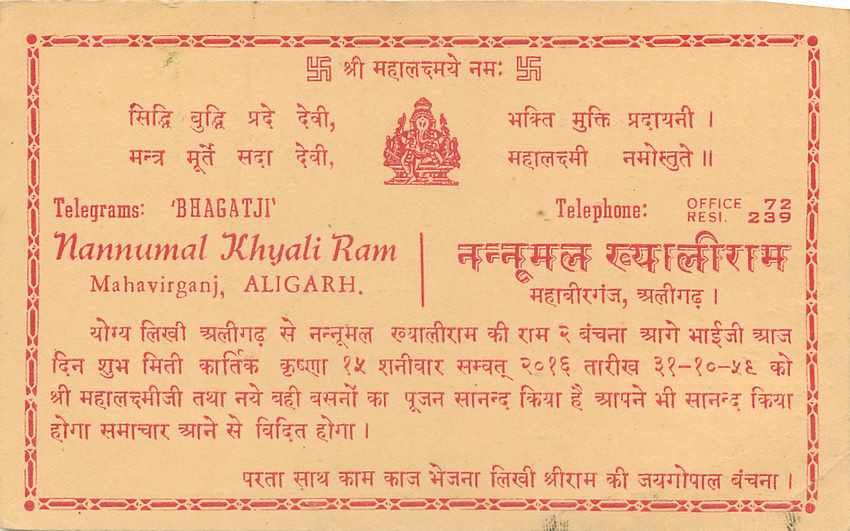 卐 श्री महालक्ष्मये नमः 卐
सिद्धि बुद्धि प्रदे देवी, भक्ति मुक्ति प्रदायनी ।
मन्त्र मूर्ते सदा देवी, महालक्ष्मी नमोस्तुते ॥
Telegrams: 'BHAGATJI' Telephone: OFFICE 72
RESI. 239
Nannumal Khyali Ram
Mahavirganj, ALIGARH.
नन्नूमल ख्यालीराम
महावीरगंज, अलीगढ़ ।
योग्य लिखी अलीगढ़ से नन्नूमल ख्यालीराम की राम २ बंचना आगे भाईजी आज
दिन शुभ मिती कार्तिक कृष्णा १५ शनीवार सम्वत् २०१६ तारीख ३१-१०-५९ को
श्री महालक्ष्मीजी तथा नये बही बसनों का पूजन सानन्द किया है आपने भी सानन्द किया
होगा समाचार आने से विदित होगा ।
परता साथ काम काज भेजना लिखी श्रीराम की जयगोपाल बंचना ।